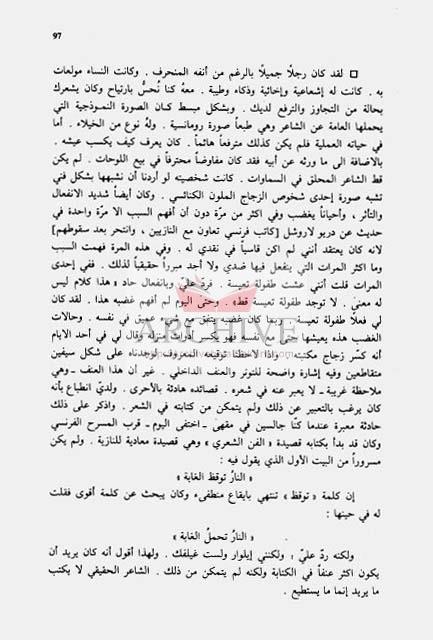 97
□ لقد كان رجلًا جميلًا بالرغم من أنفه المنحرف . وكانت النساء مولعات
به . كانت له إشعاعية وإخائية وذكاء وطيبة . معهُ كنا نُحسُّ بارتياح وكان يشعرك
بحالة من التجاوز والترفع لديك . وبشكل مبسط كان الصورة النموذجية التي
يحملها العامة عن الشاعر وهي طبعاً صورة رومانسية . ولهُ نوع من الخيلاء . أما
في حياته العملية فلم يكن كذلك مترفعاً هائماً . كان يعرف كيف يكسب عيشه .
بالاضافة الى ما ورثه عن أبيه فقد كان مفاوضاً محترفاً في بيع اللوحات . لم يكن
قط الشاعر المحلق في السماوات . كانت شخصيته لو أردنا أن نشبهها بشكل فني
تشبه صورة إحدى شخوص الزجاج الملون الكنائسي . وكان أيضاً شديد الانفعال
والتأثر ، وأحياناً يغضب وفي اكثر من مرّة دون أن أفهم السبب الا مرّة واحدة في
حديث عن دريو لاروشل [كاتب فرنسي تعاون مع النازيين ، وانتحر بعد سقوطهم]
لانه كان يعتقد أنني لم اكن قاسياً في نقدي له . وفي هذه المرة فهمت السبب
وما اكثر المرات التي ينفعل فيها ضدي ولا أجد مبرراً حقيقياً لذلك . ففي إحدى
المرات قلت أنني عشت طفولة تعيسة . فردّ عليّ وبانفعال حاد « هذا كلام ليس
له معنىً . لا توجد طفولة تعيسة قط» . وحتى اليوم لم أفهم غضبه هذا . لقد كان
لي فعلًا طفولة تعيسة . ربما كان غضبه يتفق مع شيء عميق في نفسه . وحالات
الغضب هذه يعيشها حتى مع نفسه فهو يكسر أدوات منزله وقال لي في أحد الايام
أنه كسَّر زجاج مكتبته . واذا لاحظنا توقيعه المعروف لوجدناه على شكل سيفين
متقاطعين وفيه إشارة واضحة للتوتر والعنف الداخلي . غير أن هذا العنف ــ وهي
ملاحظة غريبة ــ لا يعبر عنه في شعره . قصائده هادئة بالأحرى . ولديّ انطباع بأنه
كان يرغب بالتعبير عن ذلك ولم يتمكن من كتابته في الشعر . واذكر على ذلك
حادثة معبرة عندما كنّا جالسين في مقهىً ــ اختفى اليوم ــ قرب المسرح الفرنسي
وكان قد بدأ بكتابه قصيدة « الفن الشعري » وهي قصيدة معادية للنازية . ولم يكن
مسروراً من البيت الأول الذي يقول فيه :
« النارُ توقظ الغابة »
إن كلمة « توقظ » تنتهي بايقاع منطفىء وكان يبحث عن كلمة أقوى فقلت
له في حينها :
« النارُ تحملُ الغابة »
ولكنه ردّ عليّ : ولكنني إيلوار ولست غيلفك . ولهذا أقول أنه كان يريد أن
يكون اكثر عنفاً في الكتابة ولكنه لم يتمكن من ذلك . الشاعر الحقيقي لا يكتب
ما يريد إنما ما يستطيع .
ARCHIVE